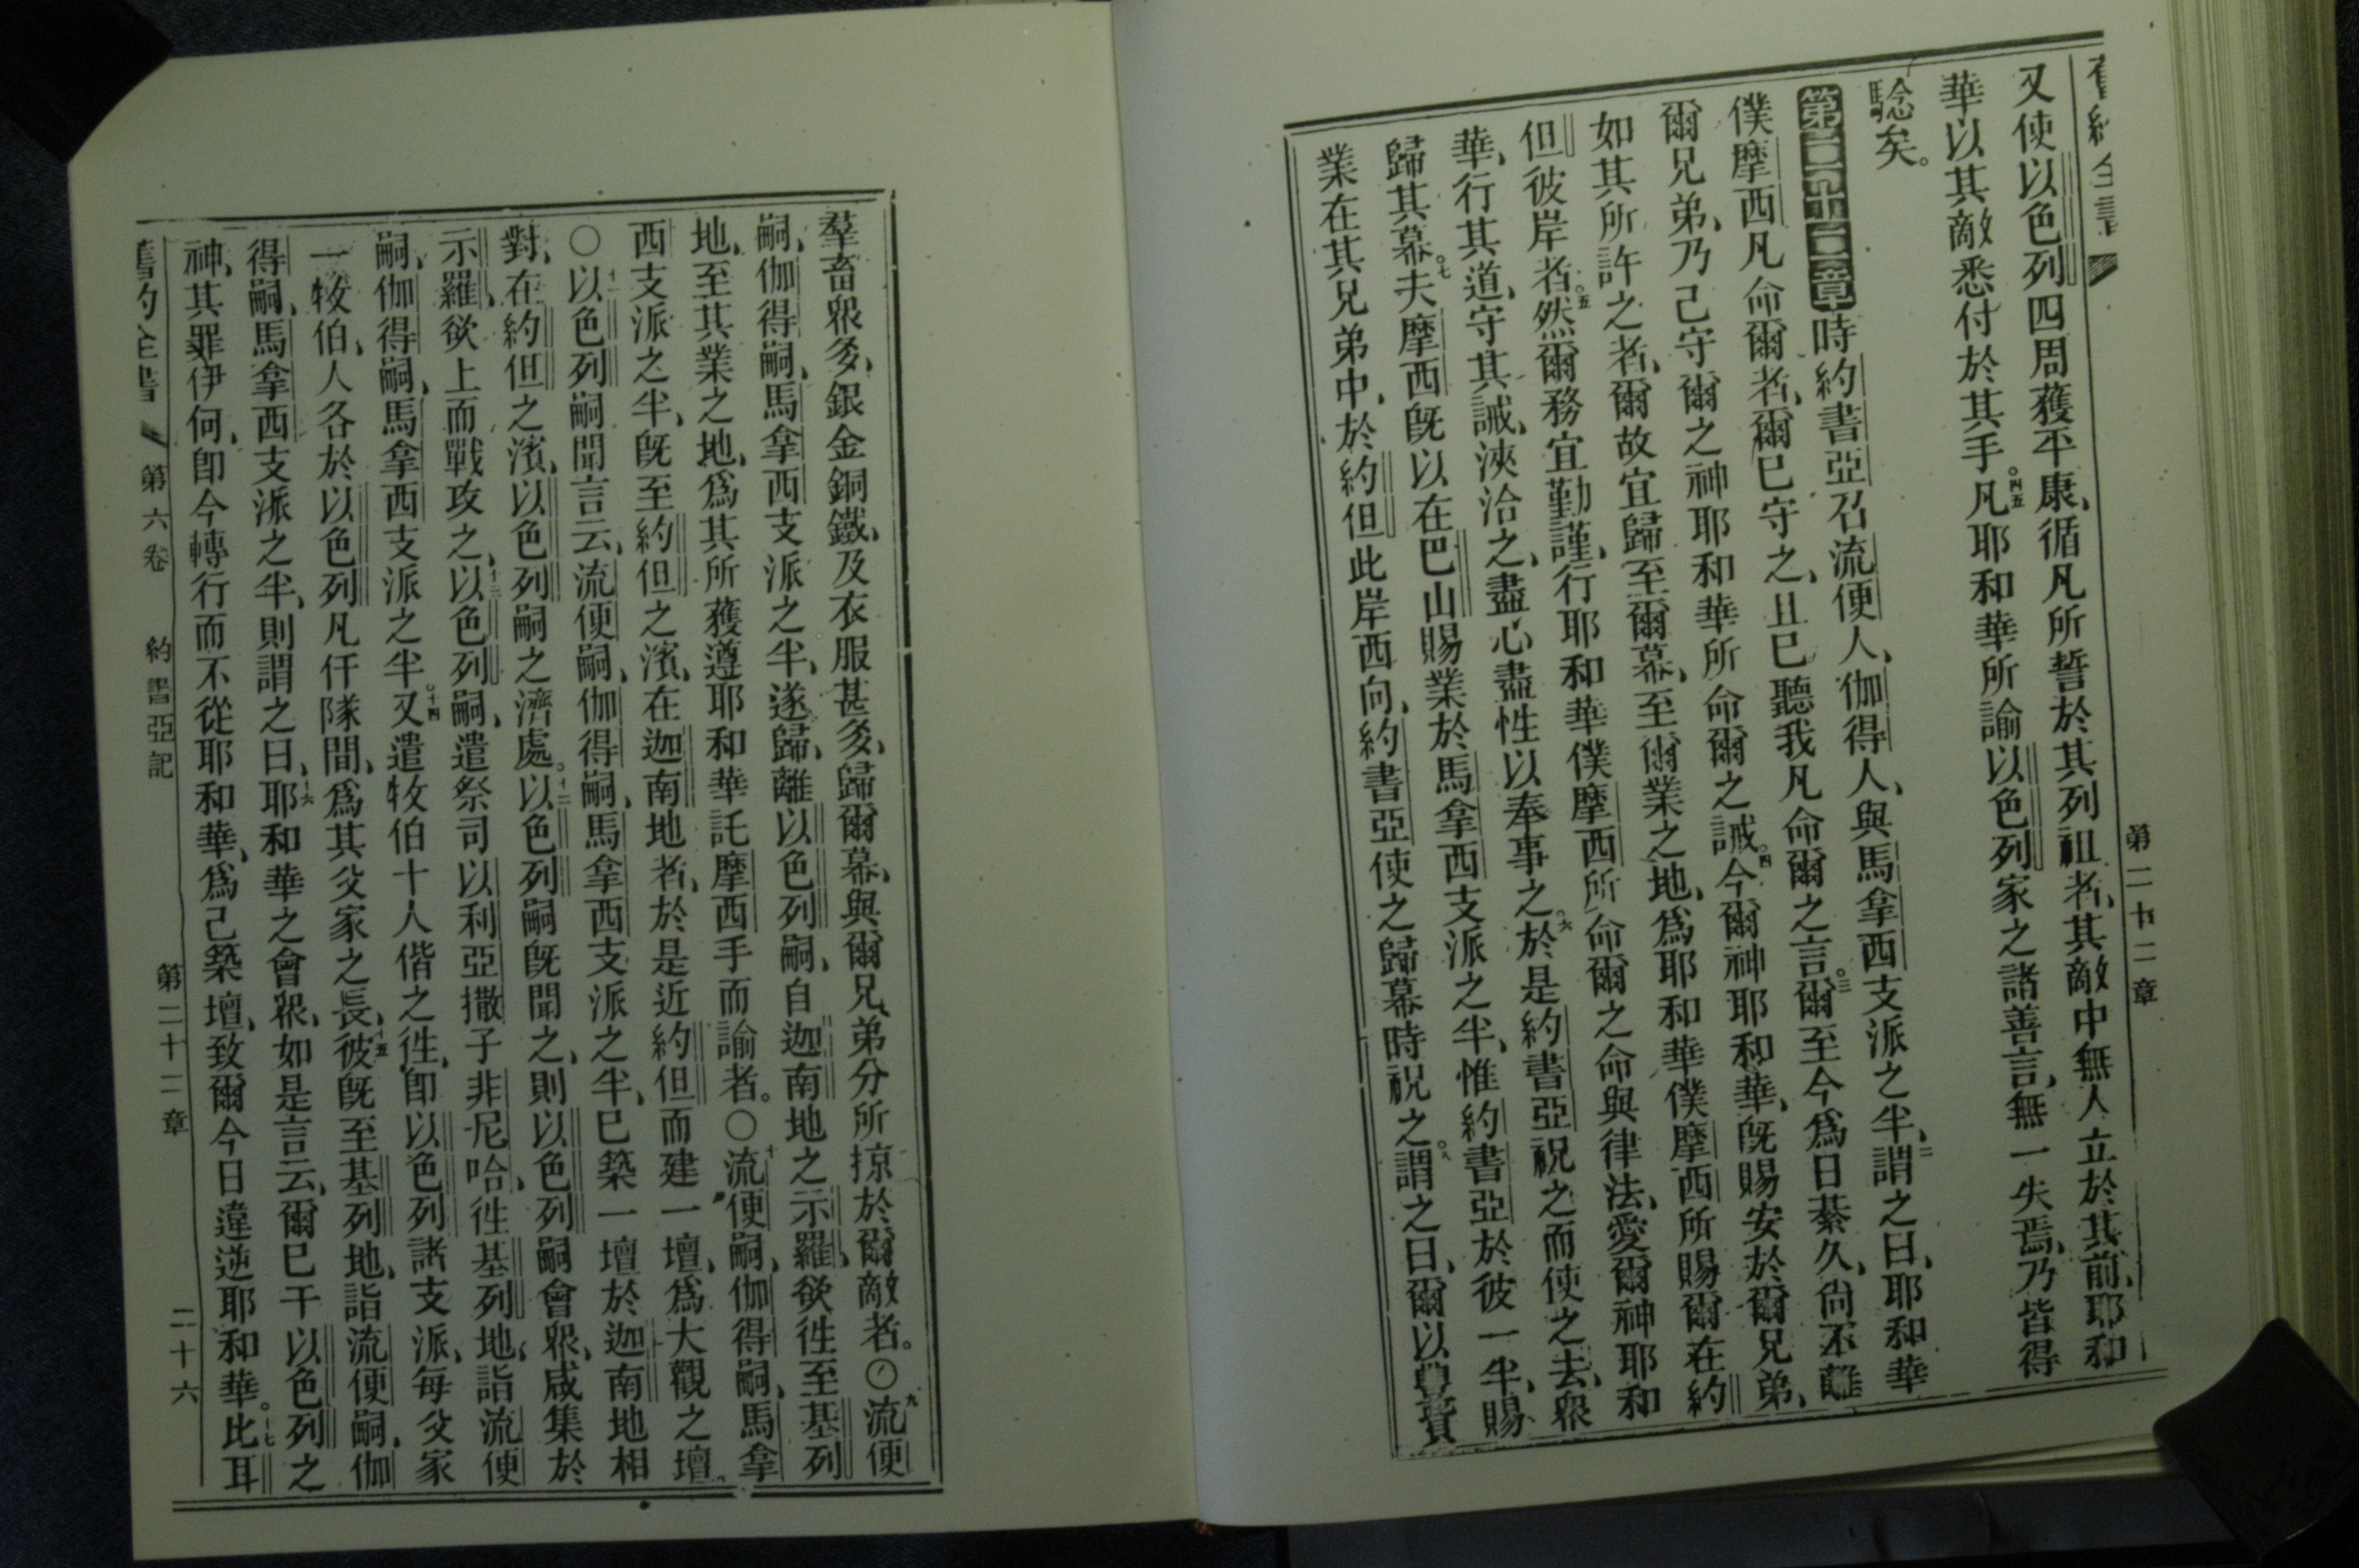 舊約全書
第二十二章
又使以色列四周獲平康、循凡所誓於其列祖者、其敵中無人立於其前、耶和
華以其敵悉付於其手。四五凡耶和華所諭以色列家之諸善言、無一失焉、乃皆得
騐矣。
第二十二章時約書亞召流便人、伽得人、與馬拿西支派之半、二謂之曰、耶和華
僕摩西凡命爾者、爾已守之、且已聽我凡命爾之言。三爾至今爲日綦久、尙不離
爾兄弟、乃己守爾之神耶和華所命爾之誡。四今爾神耶和華、旣賜安於爾兄弟、
如其所許之者、爾故宜歸至爾幕、至爾業之地、爲耶和華僕摩西所賜爾在約
但彼岸者。五然爾務宜勤謹、行耶和華僕摩西所命爾之命與律法、愛爾神耶和
華、行其道、守其誡、浹洽之、盡心盡性以奉事之。六於是約書亞祝之而使之去、衆
歸其幕。七夫摩西旣以在巴山賜業於馬拿西支派之半、惟約書亞於彼一半、賜
業在其兄弟中、於約但此岸西向、約書亞使之歸幕時祝之。八謂之曰、爾以豐貲
羣畜衆多、銀金銅鐵、及衣服甚多、歸爾幕、與爾兄弟分所掠於爾敵者。〇九流便
嗣、伽得嗣、馬拿西支派之半、遂歸、離以色列嗣、自迦南地之示羅、欲徃至基列
地、至其業之地、爲其所獲遵耶和華託摩西手而諭者。〇十流便嗣、伽得嗣、馬拿
西支派之半、旣至約但之濱、在迦南地者、於是近約但而建一壇、爲大觀之壇。
〇十一以色列嗣聞言云、流便嗣、伽得嗣、馬拿西支派之半、已築一壇於迦南地相
對、在約但之濱、以色列嗣之濟處。十二以色列嗣旣聞之、則以色列嗣會衆、咸集於
示羅、欲上而戰攻之、十三以色列嗣、遣祭司以利亞撒子非尼哈、徃基列地、詣流便
嗣、伽得嗣、馬拿西支派之半。十四又遣牧伯十人偕之徃、卽以色列諸支派、每父家
一牧伯、人各於以色列凡仟隊間、爲其父家之長、十五彼旣至基列地、詣流便嗣、伽
得嗣、馬拿西支派之半、則謂之曰、十六耶和華之會衆、如是言云、爾已干以色列之
神、其罪伊何、卽今轉行而不從耶和華、爲己築壇、致爾今日違逆耶和華。十七比耳
舊約全書 第六卷 約書亞記 第二十二章 二十六